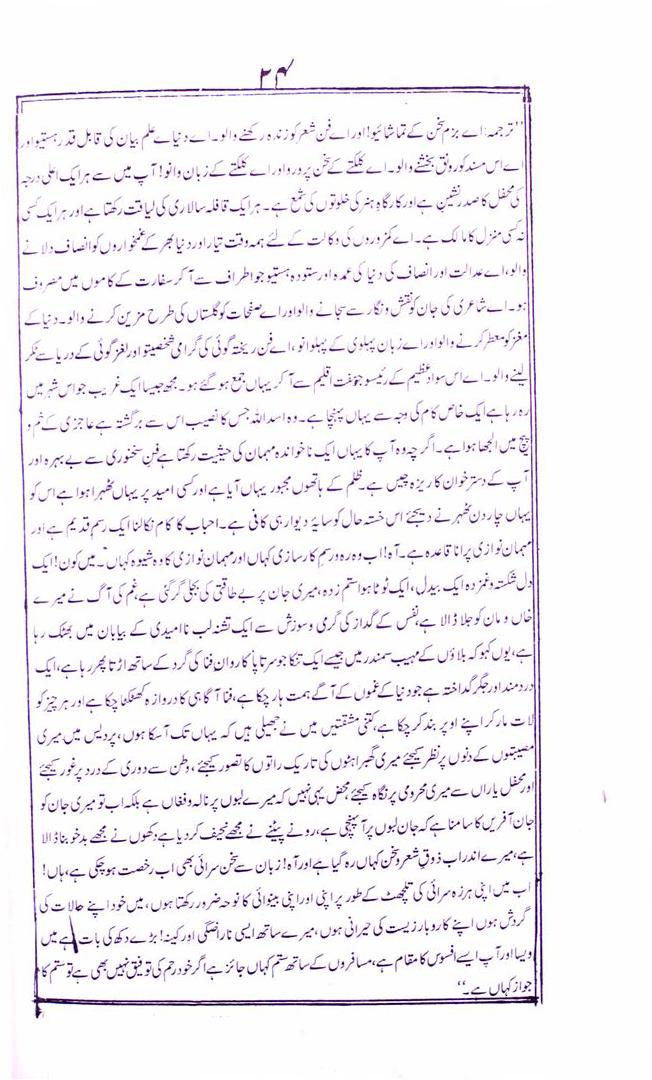 ۲۴
”ترجمہ: اے بزمِ سخن کے تماشائیو! اور اے فنِ شعر کو زندہ رکھنے والو۔ اے دنیاے علم بیان کی قابل قدر ہستیو اور
اے اس مسند کو رونق بخشنے والو۔ اے کلکتے کے سخن پرورو اور اے کلکتے کے زبان دانو! آپ میں سے ہر ایک اعلیٰ درجہ
کی محفل کا صدر نشین ہے اور کارگاہِ ہنر کی خلوتوں کی شمع ہے۔ ہر ایک قافلہ سالاری کی لیاقت رکھتا ہے اور ہر ایک کسی
نہ کسی منزل کا مالک ہے۔ اے کمزوروں کی وکالت کے لئے ہمہ وقت تیار اور دنیا بھر کے غمخواروں کو انصاف دلانے
والو، اے عدالت اور انصاف کی دنیا کی عمدہ اور ستودہ ہستیو جو اطراف سے آکر سفارت کے کاموں میں مصروف
ہو۔ اے شاعری کی جان کو نقش و نگار سے سجانے والو اور اے صفحات کو گلستاں کی طرح مزین کرنے والو۔ دنیا کے
مغز کو معطر کرنے والو اور اے زبان پہلوی کے پہلوانو، اے فن ریختہ گوئی کی گرامی شخصیتو اور لغز گوئی کے دریا سے ٹکر
لینے والو۔ اے اس سواد عظیم کے رئیسو جو ہفت اقلیم سے آکر یہاں جمع ہو گئے ہو۔ مجھ جیسا ایک غریب جو اس شہر میں
رہ رہا ہے ایک خاص کام کی وجہ سے یہاں پہنچا ہے۔ وہ اسد اللہ جس کا نصیب اس سے برگشتہ ہے عاجزی کے خم و
پیچ میں الجھا ہوا ہے۔ اگرچہ وہ آپ کا یہاں ایک ناخواندہ مہمان کی حیثیت رکھتا ہے فنِ سخنوری سے بے بہرہ اور
آپ کے دسترخوان کا ریزہ چیں ہے۔ ظلم کے ہاتھوں مجبور یہاں آیا ہے اور کسی امید پر یہاں ٹھہرا ہوا ہے اس کو
یہاں چار دن ٹھہرنے دیجئے اس خستہ حال کو سایۂ دیوار ہی کافی ہے۔ احباب کا کام نکالنا ایک رسم قدیم ہے اور
مہمان نوازی پرانا قاعدہ ہے۔ آہ! اب وہ رہ و رسمِ کارسازی کہاں اور مہمان نوازی کا وہ شیوہ کہاں۔ میں کون! ایک
دل شکستہ و غمزدہ ایک بیدل، ایک ٹوٹا ہوا ستم زدہ، میری جان پر بے طاقتی کی بجلی گر گئی ہے، غم کی آگ نے میرے
خاں و مان کو جلا ڈالا ہے، نفس کے گداز کی گرمی و سوزش سے ایک تشنہ لب نا امیدی کے بیابان میں بھٹک رہا
ہے، یوں کہو کہ بلاؤں کے مہیب سمندر میں جیسے ایک تنکا جو سر تا پا کاروان فنا کی گرد کے ساتھ اڑتا پھر رہا ہے، ایک
دردمند اور جگر گداختہ ہے جو دنیا کے غموں کے آگے ہمت ہار چکا ہے، فنا آگاہی کا دروازہ کھٹکھٹا چکا ہے اور ہر چیز کو
لات مار کر اپنے اوپر بند کر چکا ہے، کتنی مشقتیں میں نے جھیلی ہیں کہ یہاں تک آسکا ہوں، پردیس میں میری
مصیبتوں کے دنوں پر نظر کیجئے میری گھبراہٹوں کی تاریک راتوں کا تصور کیجئے، وطن سے دوری کے درد پر غور کیجئے
اور محفل یاراں سے میری محرومی پر نگاہ کیجئے محض یہی نہیں کہ میرے لبوں پر نالہ و فغاں ہے بلکہ اب تو میری جان کو
جان آفریں کا سامنا ہے کہ جان لبوں پر آپہنچی ہے، رونے پیٹنے نے مجھے نحیف کر دیا ہے دکھوں نے مجھے بدخو بنا ڈالا
ہے، میرے اندر اب ذوقِ شعر و سخن کہاں رہ گیا ہے اور آہ! زبان سے سخن سرائی بھی اب رخصت ہو چکی ہے، ہاں!
اب میں اپنی ہرزہ سرائی کی تلچھٹ کے طور پر اپنی اور اپنی بینوائی کا نوحہ ضرور رکھتا ہوں، میں خود اپنے حالات کی
گردش ہوں اپنے کاروبار زیست کی حیرانی ہوں، میرے ساتھ ایسی ناراضگی اور کینہ! بڑے دکھ کی بات ہے میں
ویسا اور آپ ایسے افسوس کا مقام ہے، مسافروں کے ساتھ ستم کہاں جائز ہے اگر خود رحم کی توفیق نہیں بھی ہے تو ستم کا
جواز کہاں ہے۔“